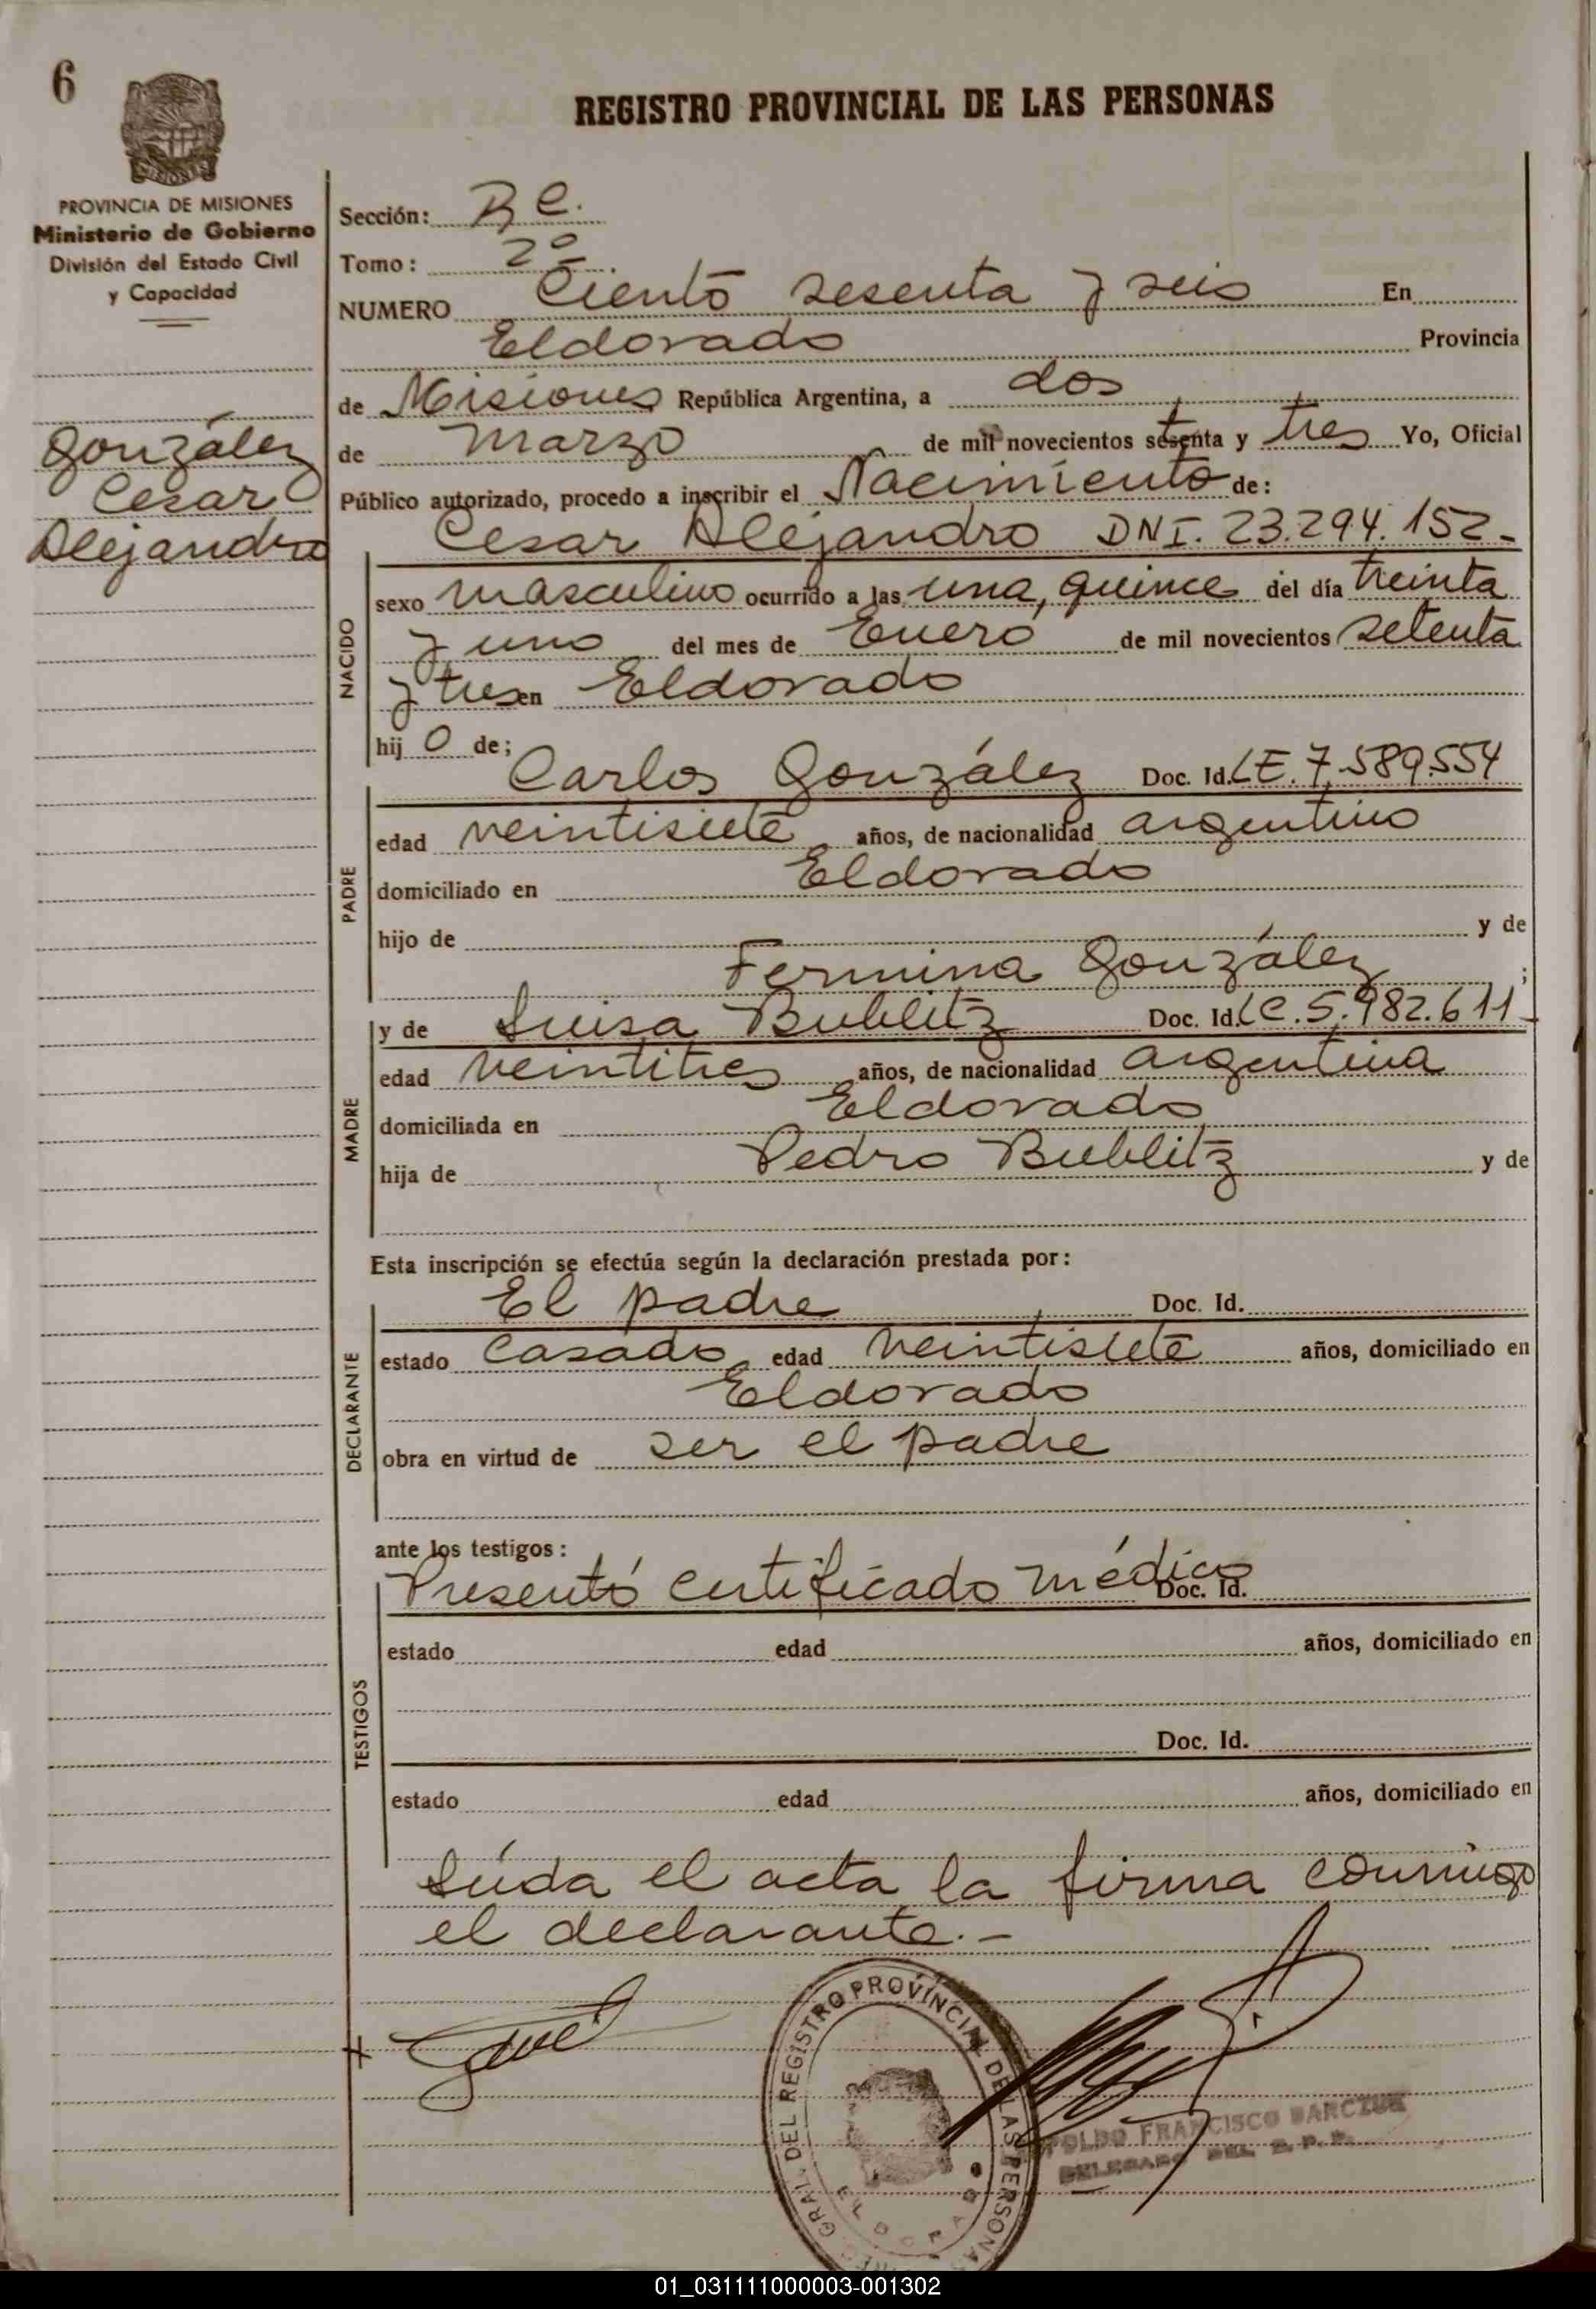 6
REGISTRO PROVINCIAL DE LAS PERSONAS
PROVINCIA DE MISIONES
Ministerio de Gobierno
División del Estado Civil
y Capacidad
González
Cesar
Alejandro
Sección: B C.
Tomo: 2º
NUMERO Ciento sesenta y seis En
Eldorado Provincia
de Misiones República Argentina, a dos
de marzo de mil novecientos setenta y tres Yo, Oficial
Público autorizado, procedo a inscribir el Nacimiento de:
Cesar Alejandro DNI. 23.294.152-
NACIDO
sexo masculino ocurrido a las una, quince del día treinta
y uno del mes de Enero de mil novecientos setenta
y tres en Eldorado
hij o de;
Carlos González Doc. Id. LE. 7.589.554
PADRE
edad veintisiete años, de nacionalidad argentino
domiciliado en Eldorado
hijo de y de
Fermina González ;
y de Luisa Bublitz Doc. Id. LC. 5.982.611-
MADRE
edad veintitres años, de nacionalidad argentina
domiciliada en Eldorado
hija de Pedro Bublitz y de
Esta inscripción se efectúa según la declaración prestada por:
El padre Doc. Id.
DECLARANTE
estado casado edad veintisiete años, domiciliado en
Eldorado
obra en virtud de ser el padre
ante los testigos:
Presentó certificado médico Doc. Id.
TESTIGOS
estado edad años, domiciliado en
Doc. Id.
estado edad años, domiciliado en
Leída el acta la firma conmigo
el declarante.-
GRAL. DEL REGISTRO PROVINCIAL DE LAS PERSONAS
ELDORADO
FRANCISCO
DELEGADO DEL R.P.P.
01_031111000003-001302